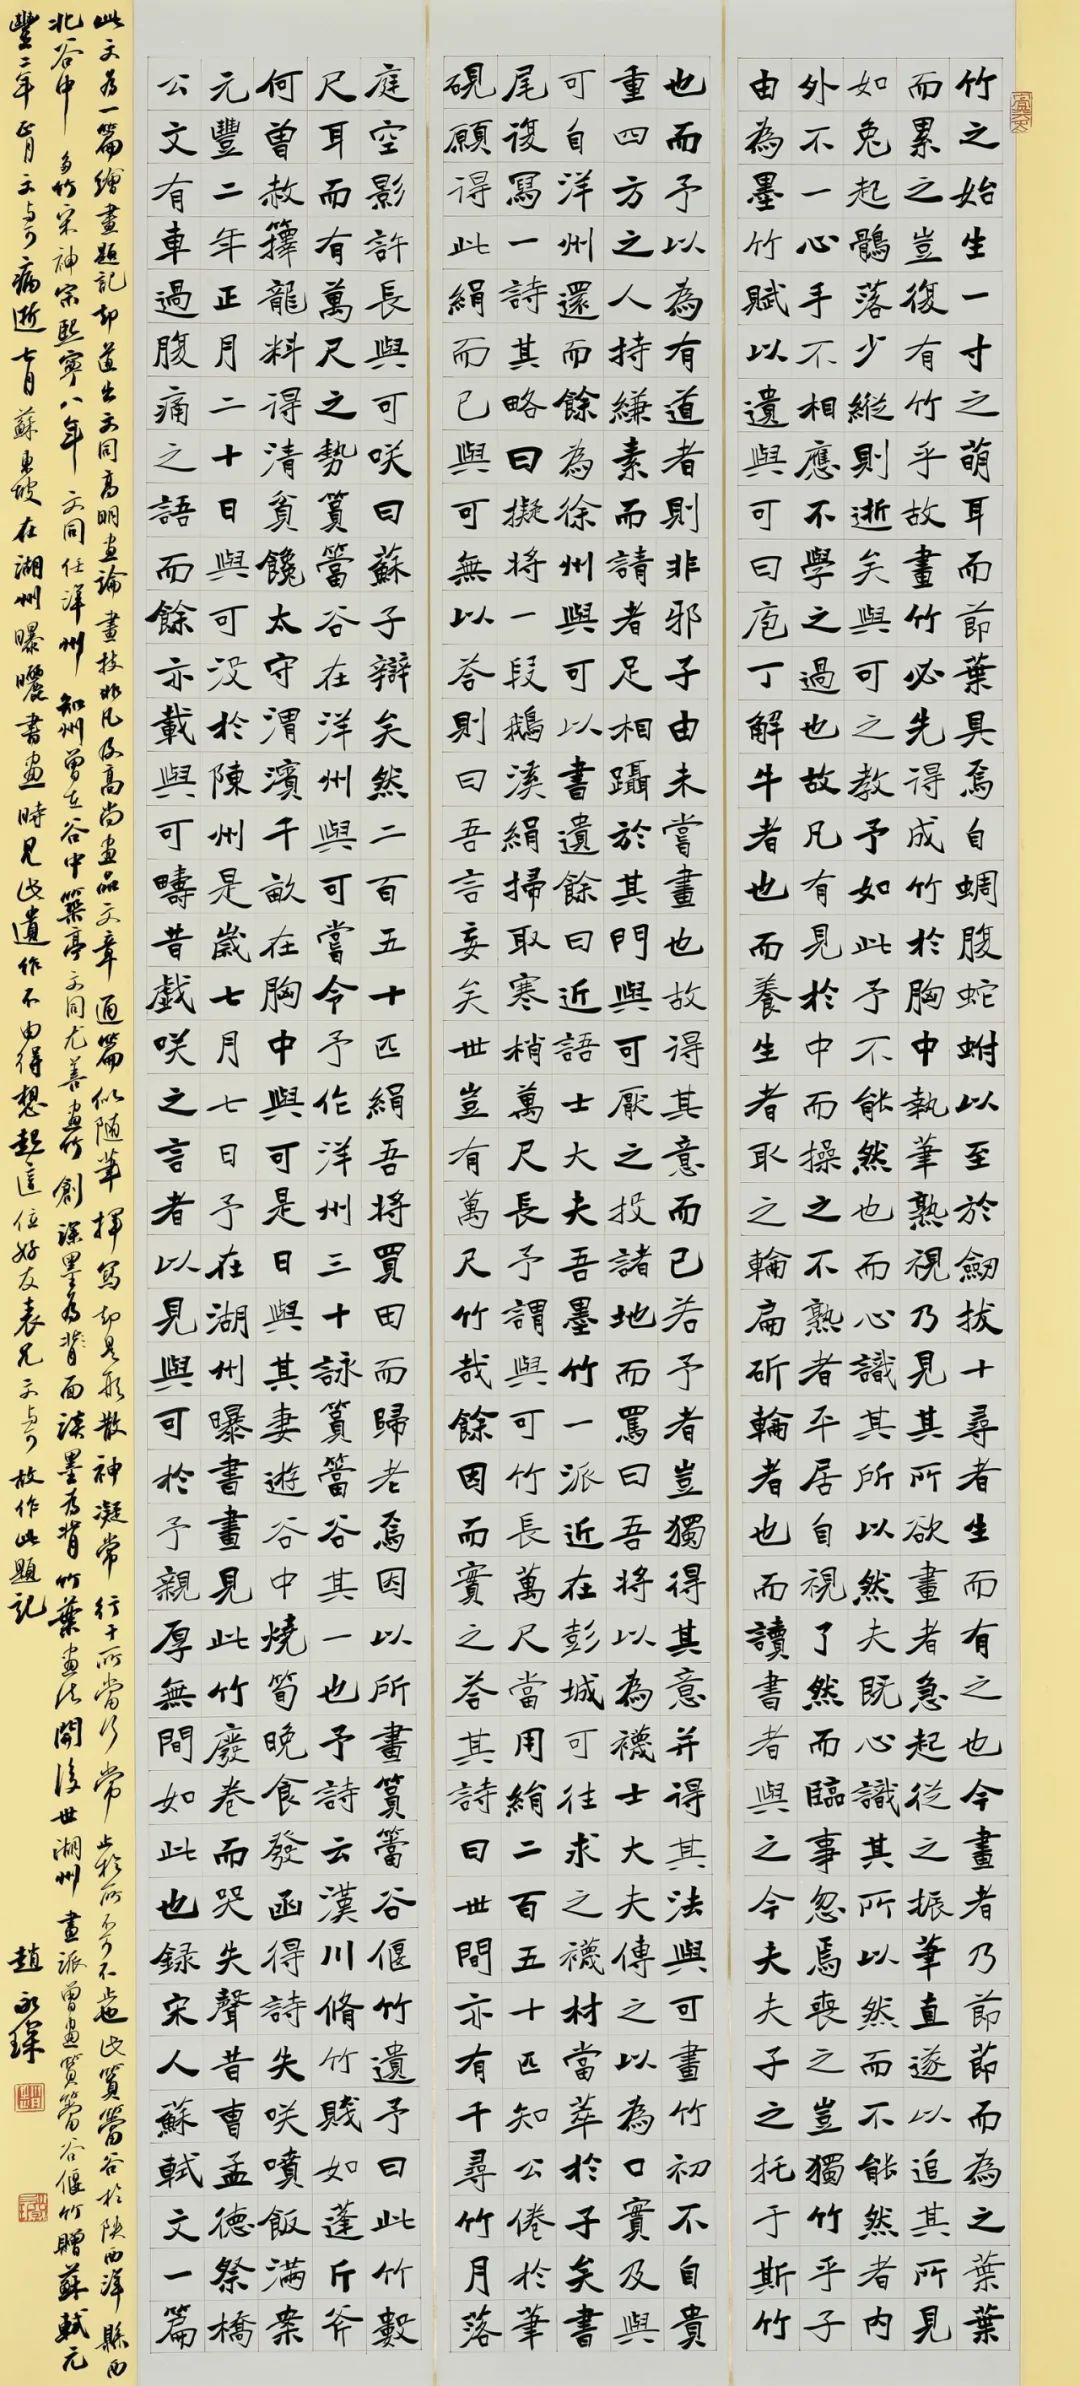 竹之始生一寸之萌耳而節葉具焉自蜩腹蛇蚹以至於劒拔十尋者生而有之也今畫者乃節節而為之葉葉
而累之豈復有竹乎故畫竹必先得成竹於胸中執筆熟視乃見其所欲畫者急起從之振筆直遂以追其所見
如兔起鶻落少縱則逝矣與可之教予如此予不能然也而心識其所以然夫既心識其所以然而不能然者內
外不一心手不相應不學之過也故凡有見於中而操之不熟者平居自視了然而臨事忽焉喪之豈獨竹乎子
由為墨竹賦以遺與可曰庖丁解牛者也而養生者取之輪扁斫輪者也而讀書者與之今夫夫子之托于斯竹
也而予以為有道者則非邪子由未嘗畫也故得其意而已若予者豈獨得其意并得其法與可畫竹初不自貴
重四方之人持縑素而請者足相躡於其門與可厭之投諸地而罵曰吾將以為襪士大夫傳之以為口實及與
可自洋州還而餘為徐州與可以書遺餘曰近語士大夫吾墨竹一派近在彭城可往求之襪材當萃於子矣書
尾復寫一詩其略曰擬將一段鵝溪絹掃取寒梢萬尺長予謂與可竹長萬尺當用絹二百五十匹知公倦於筆
硯願得此絹而已與可無以答則曰吾言妄矣世豈有萬尺竹哉餘因而實之答其詩曰世間亦有千尋竹月落
庭空影許長與可咲曰蘇子辯矣然二百五十匹絹吾將買田而歸老焉因以所畫篔簹谷偃竹遺予曰此竹數
尺耳而有萬尺之勢篔簹谷在洋州與可嘗令予作洋州三十詠篔簹谷其一也予詩云漢川脩竹賤如蓬斤斧
何曾赦籜龍料得清貧饞太守渭濱千畝在胸中與可是日與其妻遊谷中燒筍晚食發函得詩失咲噴飯滿案
元豐二年正月二十日與可沒於陳州是歲七月七日予在湖州曝書畫見此竹廢卷而哭失聲昔曹孟德祭橋
公文有車過腹痛之語而餘亦載與可疇昔戲咲之言者以見與可於予親厚無間如此也録宋人蘇軾文一篇
此文為一篇繪畫題記却道出文同高明畫論畫技非凡及高尚畫品文章通篇似隨筆揮寫却是形散神凝常行于所當行常止於所不可不止也此篔簹谷於陝西洋縣西
北谷中多竹宋神宗熙寧八年文同任洋州知州曾在谷中築亭文同尤善畫竹創深墨為面淡墨為背竹葉畫法開後世湖州畫派曾畫篔簹谷偃竹贈蘇軾元
豐二年正月文與可病逝七月蘇東坡在湖州曝曬書畫時見此遺作不由得想起這位好友表兄文與可故作此題記
趙永